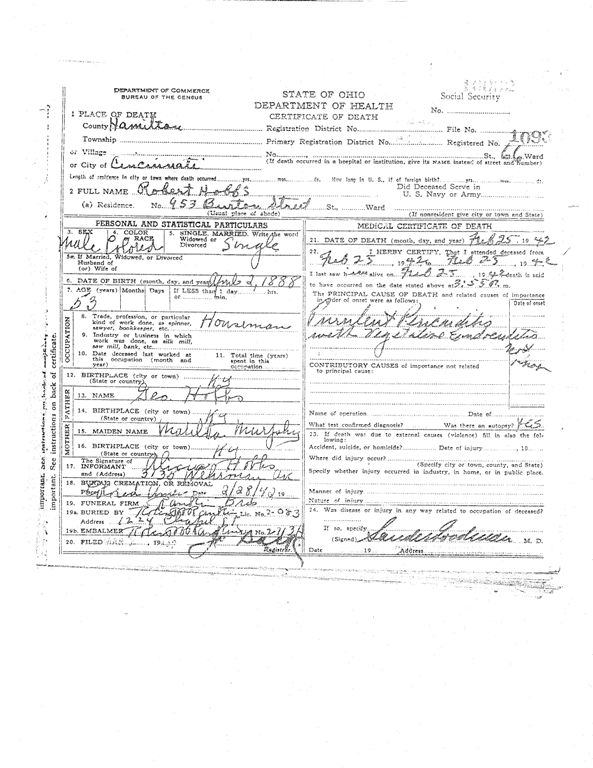 DEPARTMENT OF COMMERCE
BUREAU OF THE CENSUS
STATE OF OHIO
DEPARTMENT OF HEALTH
CERTIFICATE OF DEATH
Social Security
No.
1 PLACE OF DEATH
County Hamilton Registration District No. File No.
Township Primary Registration District No. Registered No. 1093
or Village No. St., Ward
or City of Cincinnati (If death occurred in a hospital or institution, give its NAME instead of street and number)
Length of residence in city or town where death occurred yrs. mos. ds. How long in U. S., if of foreign birth? yrs. mos. ds.
2 FULL NAME Robert Hobbs Did Deceased Serve in U. S. Navy or Army
(a) Residence. No. 953 Burton Street St., Ward
(Usual place of abode) (If nonresident give city or town and State)
PERSONAL AND STATISTICAL PARTICULARS
3. SEX Male 4. COLOR or RACE Colored 5. SINGLE, MARRIED, Write the word Widowed or Divorced Single
5a. If Married, Widowed, or Divorced
Husband of
(or) Wife of
6. DATE OF BIRTH (month, day, and year) April 2, 1888
7. AGE (years) Months Days If LESS than 1 day hrs. or min.
53
OCCUPATION
8. Trade, profession, or particular kind of work done, as spinner, sawyer, bookkeeper, etc. Houseman
9. Industry or business in which work was done, as silk mill, saw mill, bank, etc.
10. Date deceased last worked at this occupation (month and year)
11. Total time (years) spent in this occupation
12. BIRTHPLACE (city or town)
(State or country) Ky
FATHER
13. NAME Geo. Hobbs
14. BIRTHPLACE (city or town)
(State or country) Ky
MOTHER
15. MAIDEN NAME Matilda Murphy
16. BIRTHPLACE (city or town)
(State or country) Ky
17. The Signature of INFORMANT Hobbs
and (Address) 3130 Wehrman Ave
18. BURIAL, CREMATION, OR REMOVAL
Place Date 2/28/42 19
19. FUNERAL FIRM Bros
19a. BURIED BY Lic. No. 2-083
Address 1224 Chapel St
19b. EMBALMER No. 2113A
20. FILED MAR 19
Registrar.
MEDICAL CERTIFICATE OF DEATH
21. DATE OF DEATH (month, day, and year) Feb 25, 1942
22. I HEREBY CERTIFY, That I attended deceased from
Feb 25, 1942, to Feb 25, 1942
I last saw him alive on Feb 25, 1942 death is said
to have occurred on the date stated above at 3:55 P. m.
The PRINCIPAL CAUSE OF DEATH and related causes of importance in order of onset were as follows:
Date of onset
Purulent Pericarditis
with Vegetative Endocarditis
CONTRIBUTORY CAUSES of importance not related to principal cause:
Name of operation Date of
What test confirmed diagnosis? Was there an autopsy? Yes
23. If death was due to external causes (violence) fill in also the following:
Accident, suicide, or homicide? Date of injury , 19
Where did injury occur?
(Specify city or town, county, and State)
Specify whether injury occurred in industry, in home, or in public place.
Manner of injury
Nature of injury
24. Was disease or injury in any way related to occupation of deceased?
If so, specify
(Signed) Sander Goodman M. D.
Date 19 Address
important. See instructions on back of certificate.